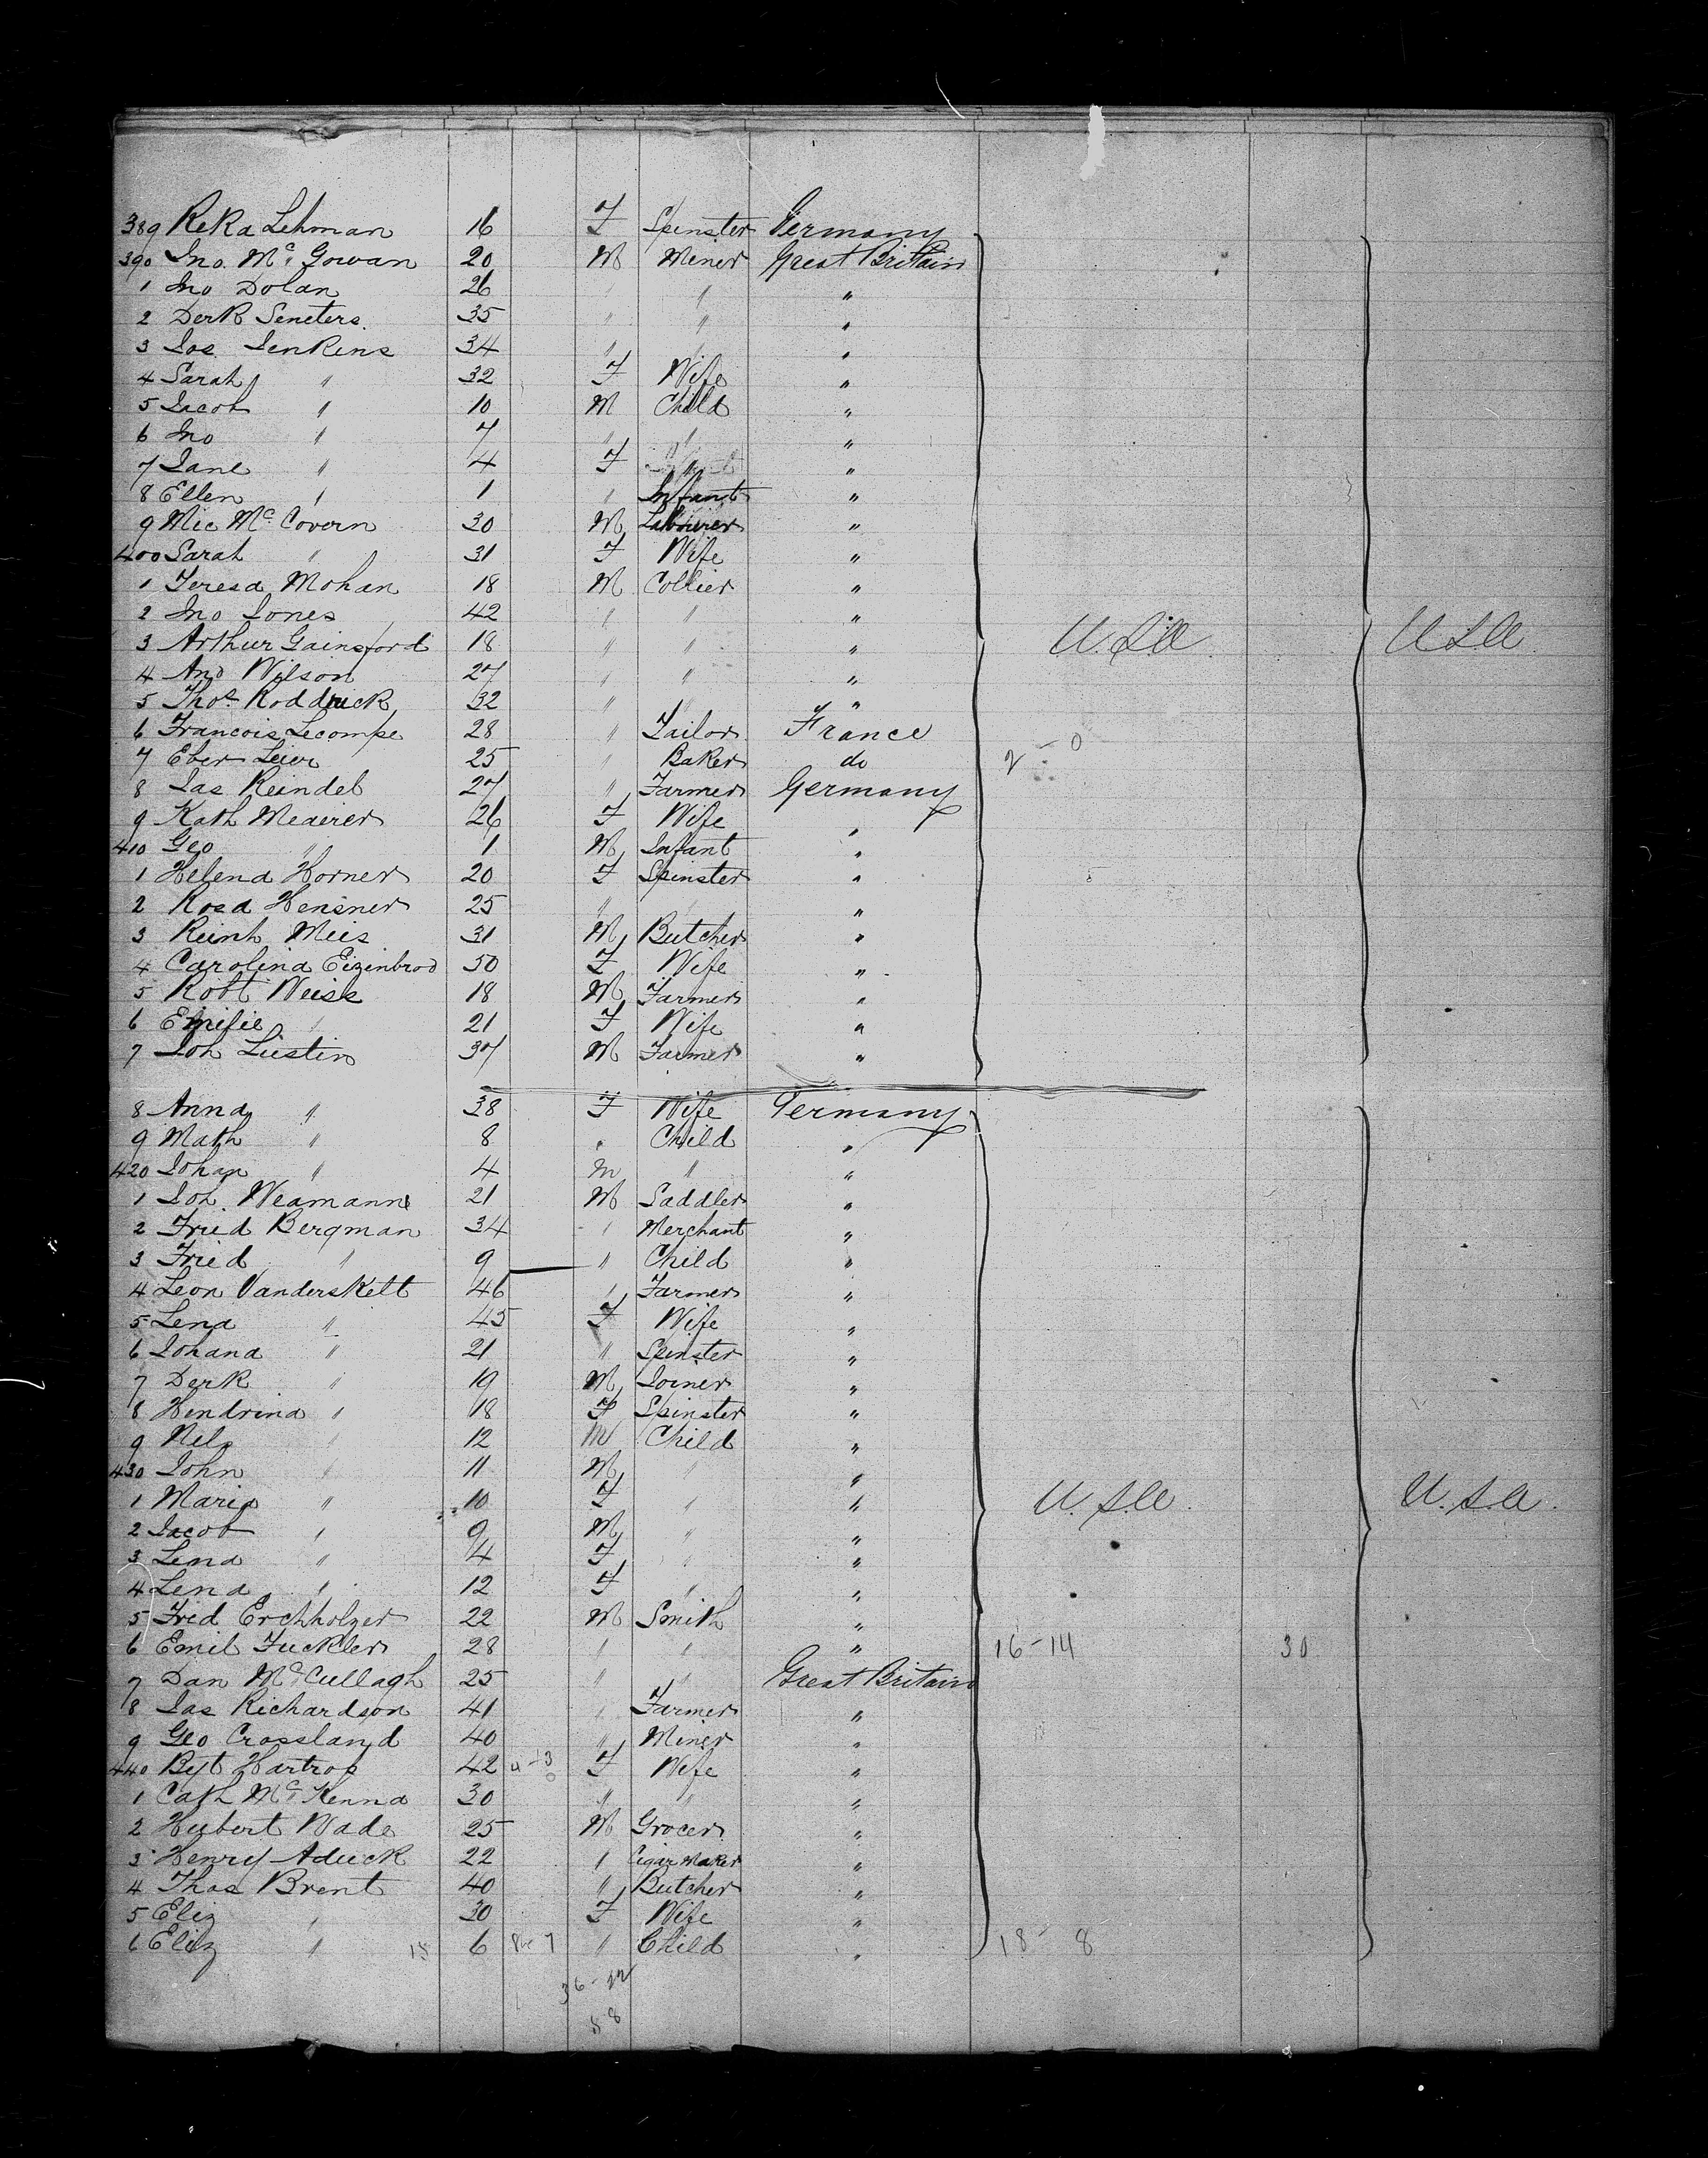 389 Reka Lehman 16 F Spinster Germany
390 Jno. Mc Gowan 20 M Miner Great Britain
1 Jno Dolan 26 " " "
2 Derk Seneters 35 " " "
3 Jos. Jenkins 34 " " "
4 Sarah " 32 F Wife "
5 Jacob " 10 M Child "
6 Jno " 7 " " "
7 Jane " 4 F " "
8 Ellen " 1 " Infant "
9 Mic Mc Covern 30 M Labourer "
400 Sarah " 31 F Wife "
1 Teresa Mohan 18 M Collier "
2 Jno Jones 42 " " "
3 Arthur Gainsford 18 " " " U.S.A. U.S.A.
4 And Wilson 27 " " "
5 Thos Roddrick 32 " " "
6 Francois Lecompe 28 " Tailor France
7 Eber Leier 25 " Baker do 2 - 0
8 Jas Reindel 27 " Farmer Germany
9 Kath Meaierer 26 F Wife "
410 Geo " 1 M Infant "
1 Helena Horner 20 F Spinster "
2 Rosa Hensner 25 " " "
3 Reinh Meis 31 M Butcher "
4 Carolina Eizenbrod 50 F Wife "
5 Robt Weiss 18 M Farmer "
6 Emilie " 21 F Wife "
7 Joh Liestin 37 M Farmer "
8 Anna " 38 F Wife Germany
9 Math " 8 " Child "
420 Johan " 4 M " "
1 Joh. Weamann 21 M Saddler "
2 Fried Bergman 34 " Merchant "
3 Fried " 9 " Child "
4 Leon Vanderskelt 46 " Farmer "
5 Lena " 45 F Wife "
6 Johana " 21 " Spinster "
7 Derk " 19 M Joiner "
8 Hendrina " 18 F Spinster "
9 Nels " 12 M Child "
430 John " 11 M " "
1 Maria " 10 F " " U.S.A. U.S.A.
2 Jacob " 9 M " "
3 Lena " 4 F " "
4 Lena " 12 F " "
5 Fried Erchholzer 22 M Smith "
6 Emil Fuckler 28 " " " 16-14 30
7 Dan McCullagh 25 " " Great Britain
8 Jas Richardson 41 " Farmer "
9 Geo Crossland 40 " Miner "
440 Byt Hartrop 42 F Wife "
1 Cath Mc Kenna 30 " " "
2 Hubert Wade 25 M Grocer "
3 Henry Aduck 22 " Cigar Maker "
4 Thos Brent 40 " Butcher "
5 Eliz " 30 F Wife "
6 Eliz " 15 6 " Child " 18- 8
36-22
58